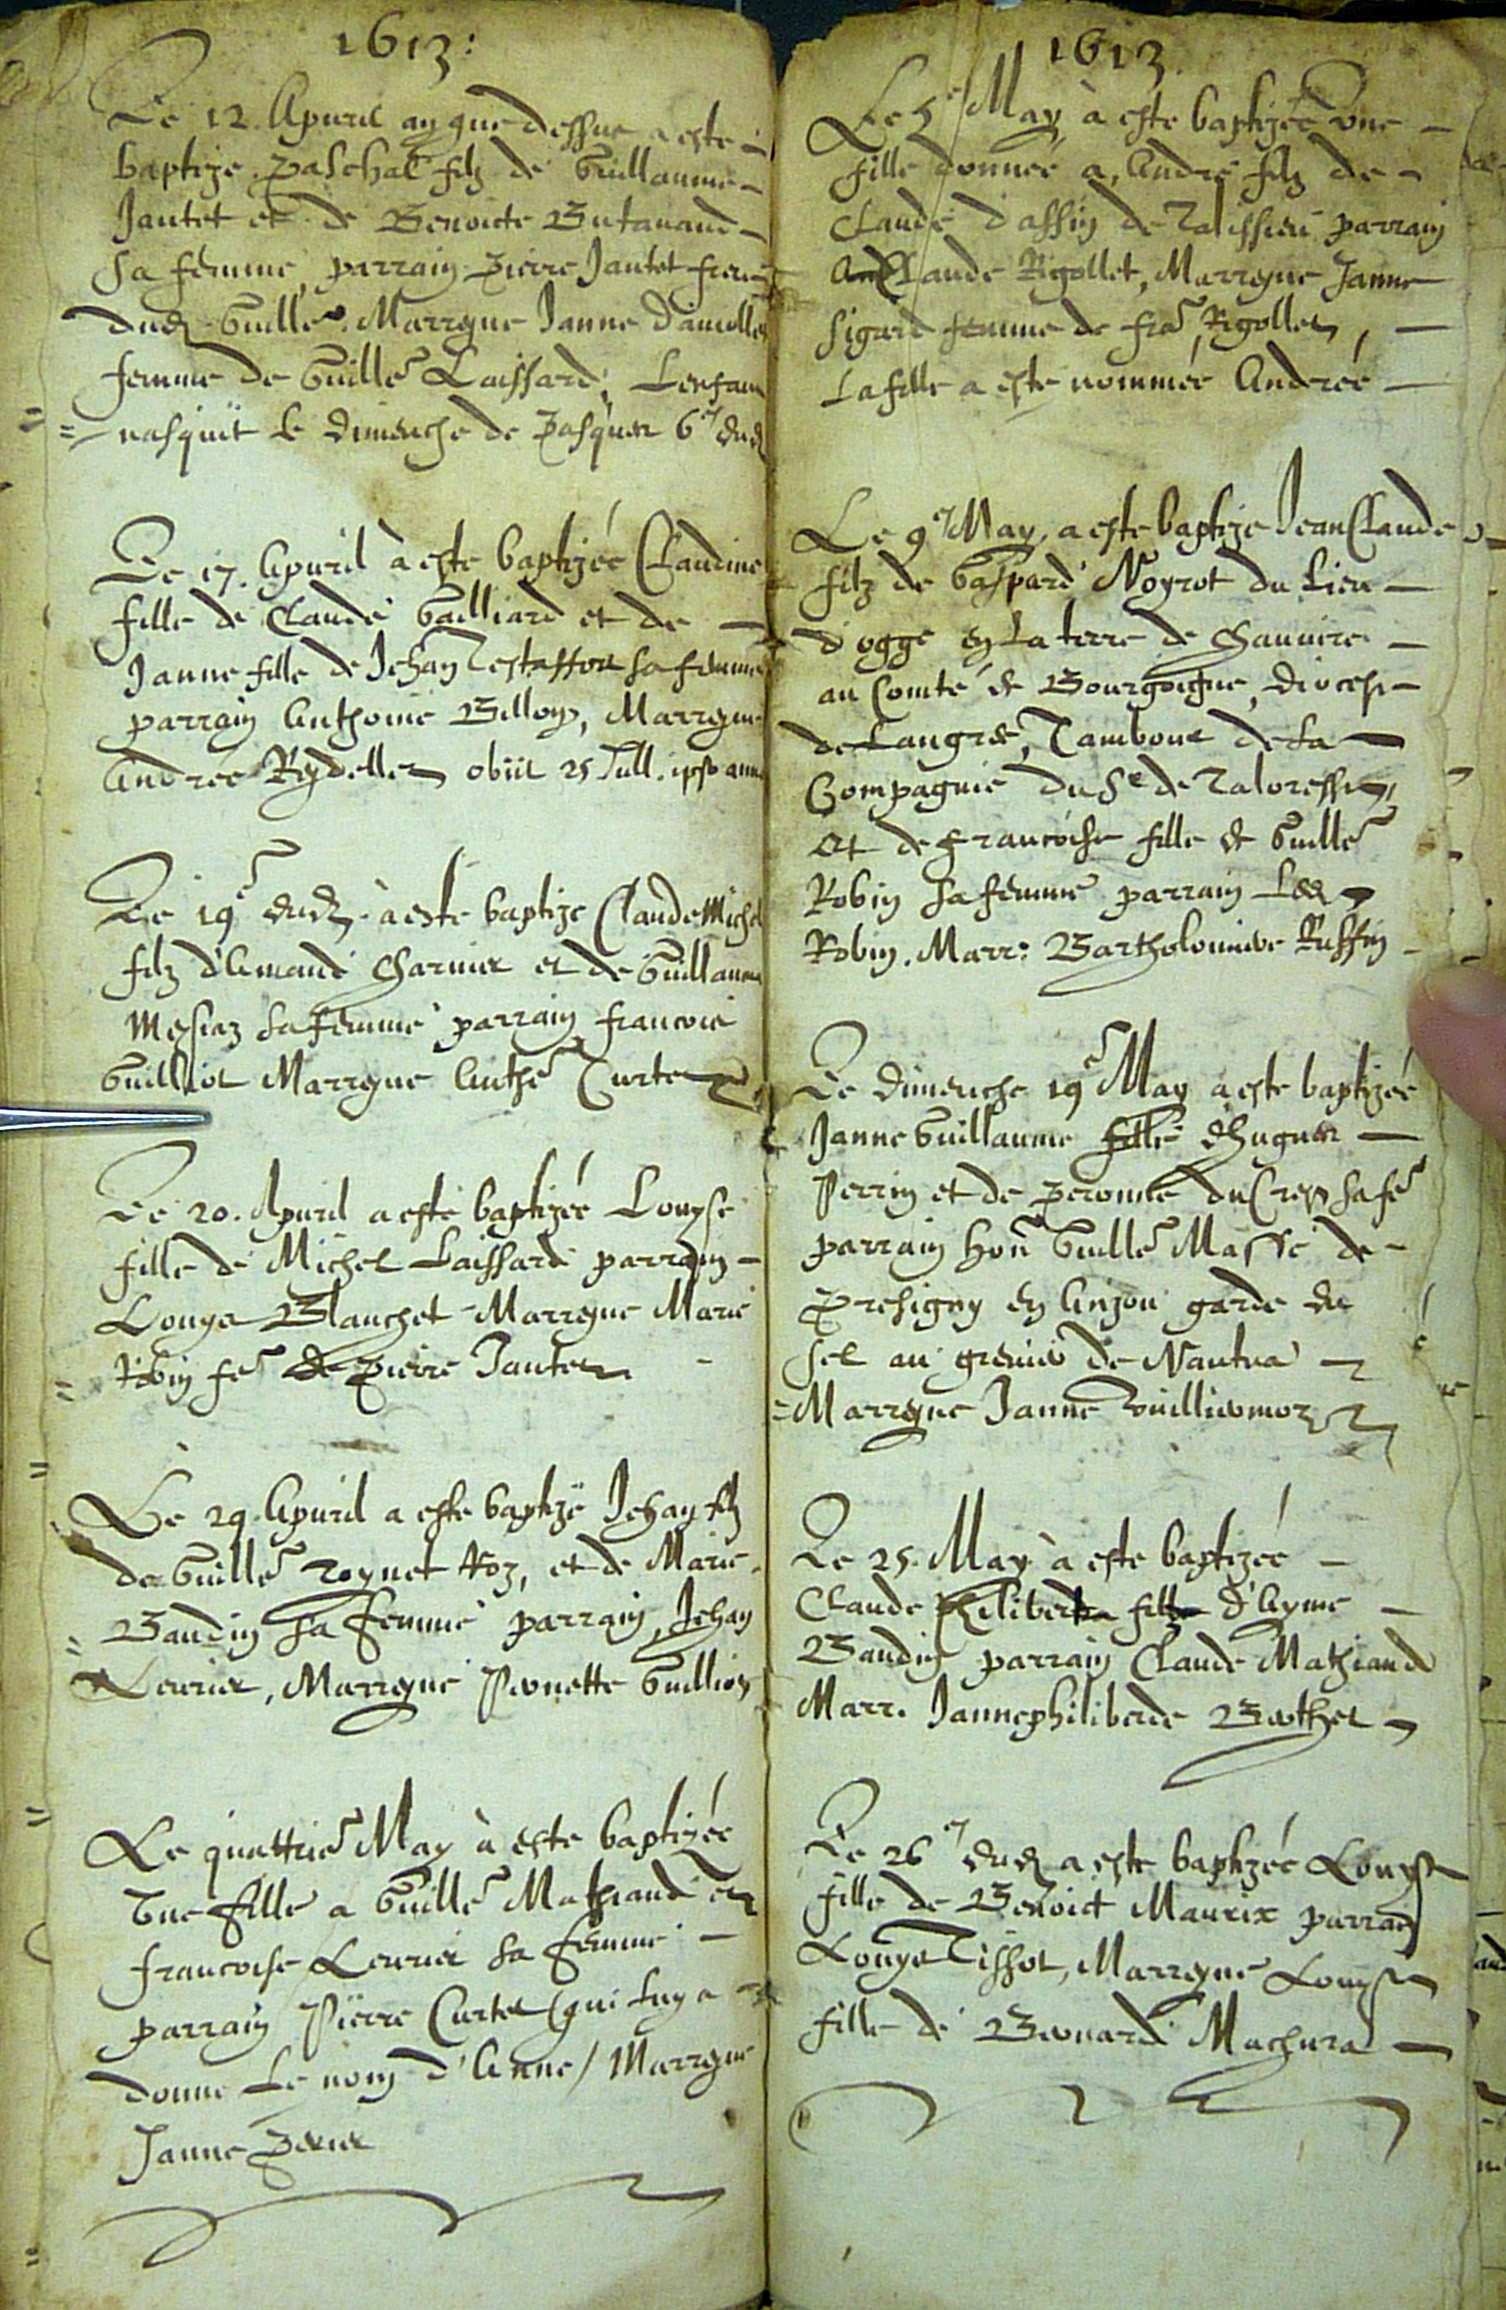 1613:
Le 12. Apuril an que dessus a esté
baptizé Paschal filz de Guillaume
Jantet et de Benoicte Butauand
sa femme, parrain Pierre Jantet frere
dud. Guille. Marreyne Janne
femme de Guille Laissard, Lenfant
nasquit le dimenche de Pasques 6e dud

Le 17. Apuril à esté baptizée Claudine
fille de Claude Gailliard et de
Janne fille de Jehan sa femme
parrain Anthoine Billon, Marreyne
Andrée Reydellet obiit 25 Jull. ipso anno

Le 19e dud. à esté baptizé Claude Michel
filz d'Amand Charuier et de Guillauma
Mesiaz sa femme parrain francois
Guilliot Marreyne Anthe Curtet

Le 20. Apuril a esté baptizée Louyse
fille de Michel Laissard parrain
Louys Blanchet Marreyne Marie
Robin fe de Pierre Jantet

Le 29. Apuril a esté baptizé Jehan filz
de Guille Roz, et de Marie
Baudin sa femme parrain Jehan
Leurier, Marreyne Pernette Guillion

Le quattrie May à esté baptizée
Vne fille a Guille Mathiand et
francoise Leurier sa femme
parrain Pierre Curtet (qui luy a
donné le nom d'Anne / Marreyne
Janne Perier

1613.
Le 5e May à esté baptizée vne
fille donnée a, André filz de
Claude d'assin de Talissieu parrain
Claude Rigollet, Marreyne Janne
Sigard femme de fra Rigollet,
La fille a esté nommée Andrée

Le 9e May, a esté baptizé Jean Claude
filz de Gaspard Noyrot du Lieu
d'ogge en la terre de Chauuire
au Comté de Bourgoigne, diocese
de Langres, Tambour de la
Compagnie du Sr de
et de francoise fille de Guille
Robin sa femme parrain Led
Robin. Marr: Bartholomiue Ruffin

Le dimenche 19e May a esté baptizée
Janne Guillauma fille d'hugues
Perrin et de Peronne du Crest sa fe
parrain hon Guille Massé de
Presigny en Anjou garde du
sel au grenier de Nantua
Marreyne Janne Vuilliermoz

Le 25. May à esté baptizée
Claude Philiberta fille d'Ayme
Baudin parrain Claude Mathiand
Marr. Janne philiberde Berthet

Le 26e dud a esté baptizée Louyse
fille de Benoict Maurix parrain
Louys Tissot, Marreyne Louyse
fille de Bernard Machurat